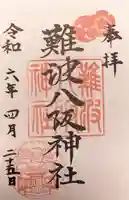 奉拝
難波八阪神社
令和六年四月二十五日